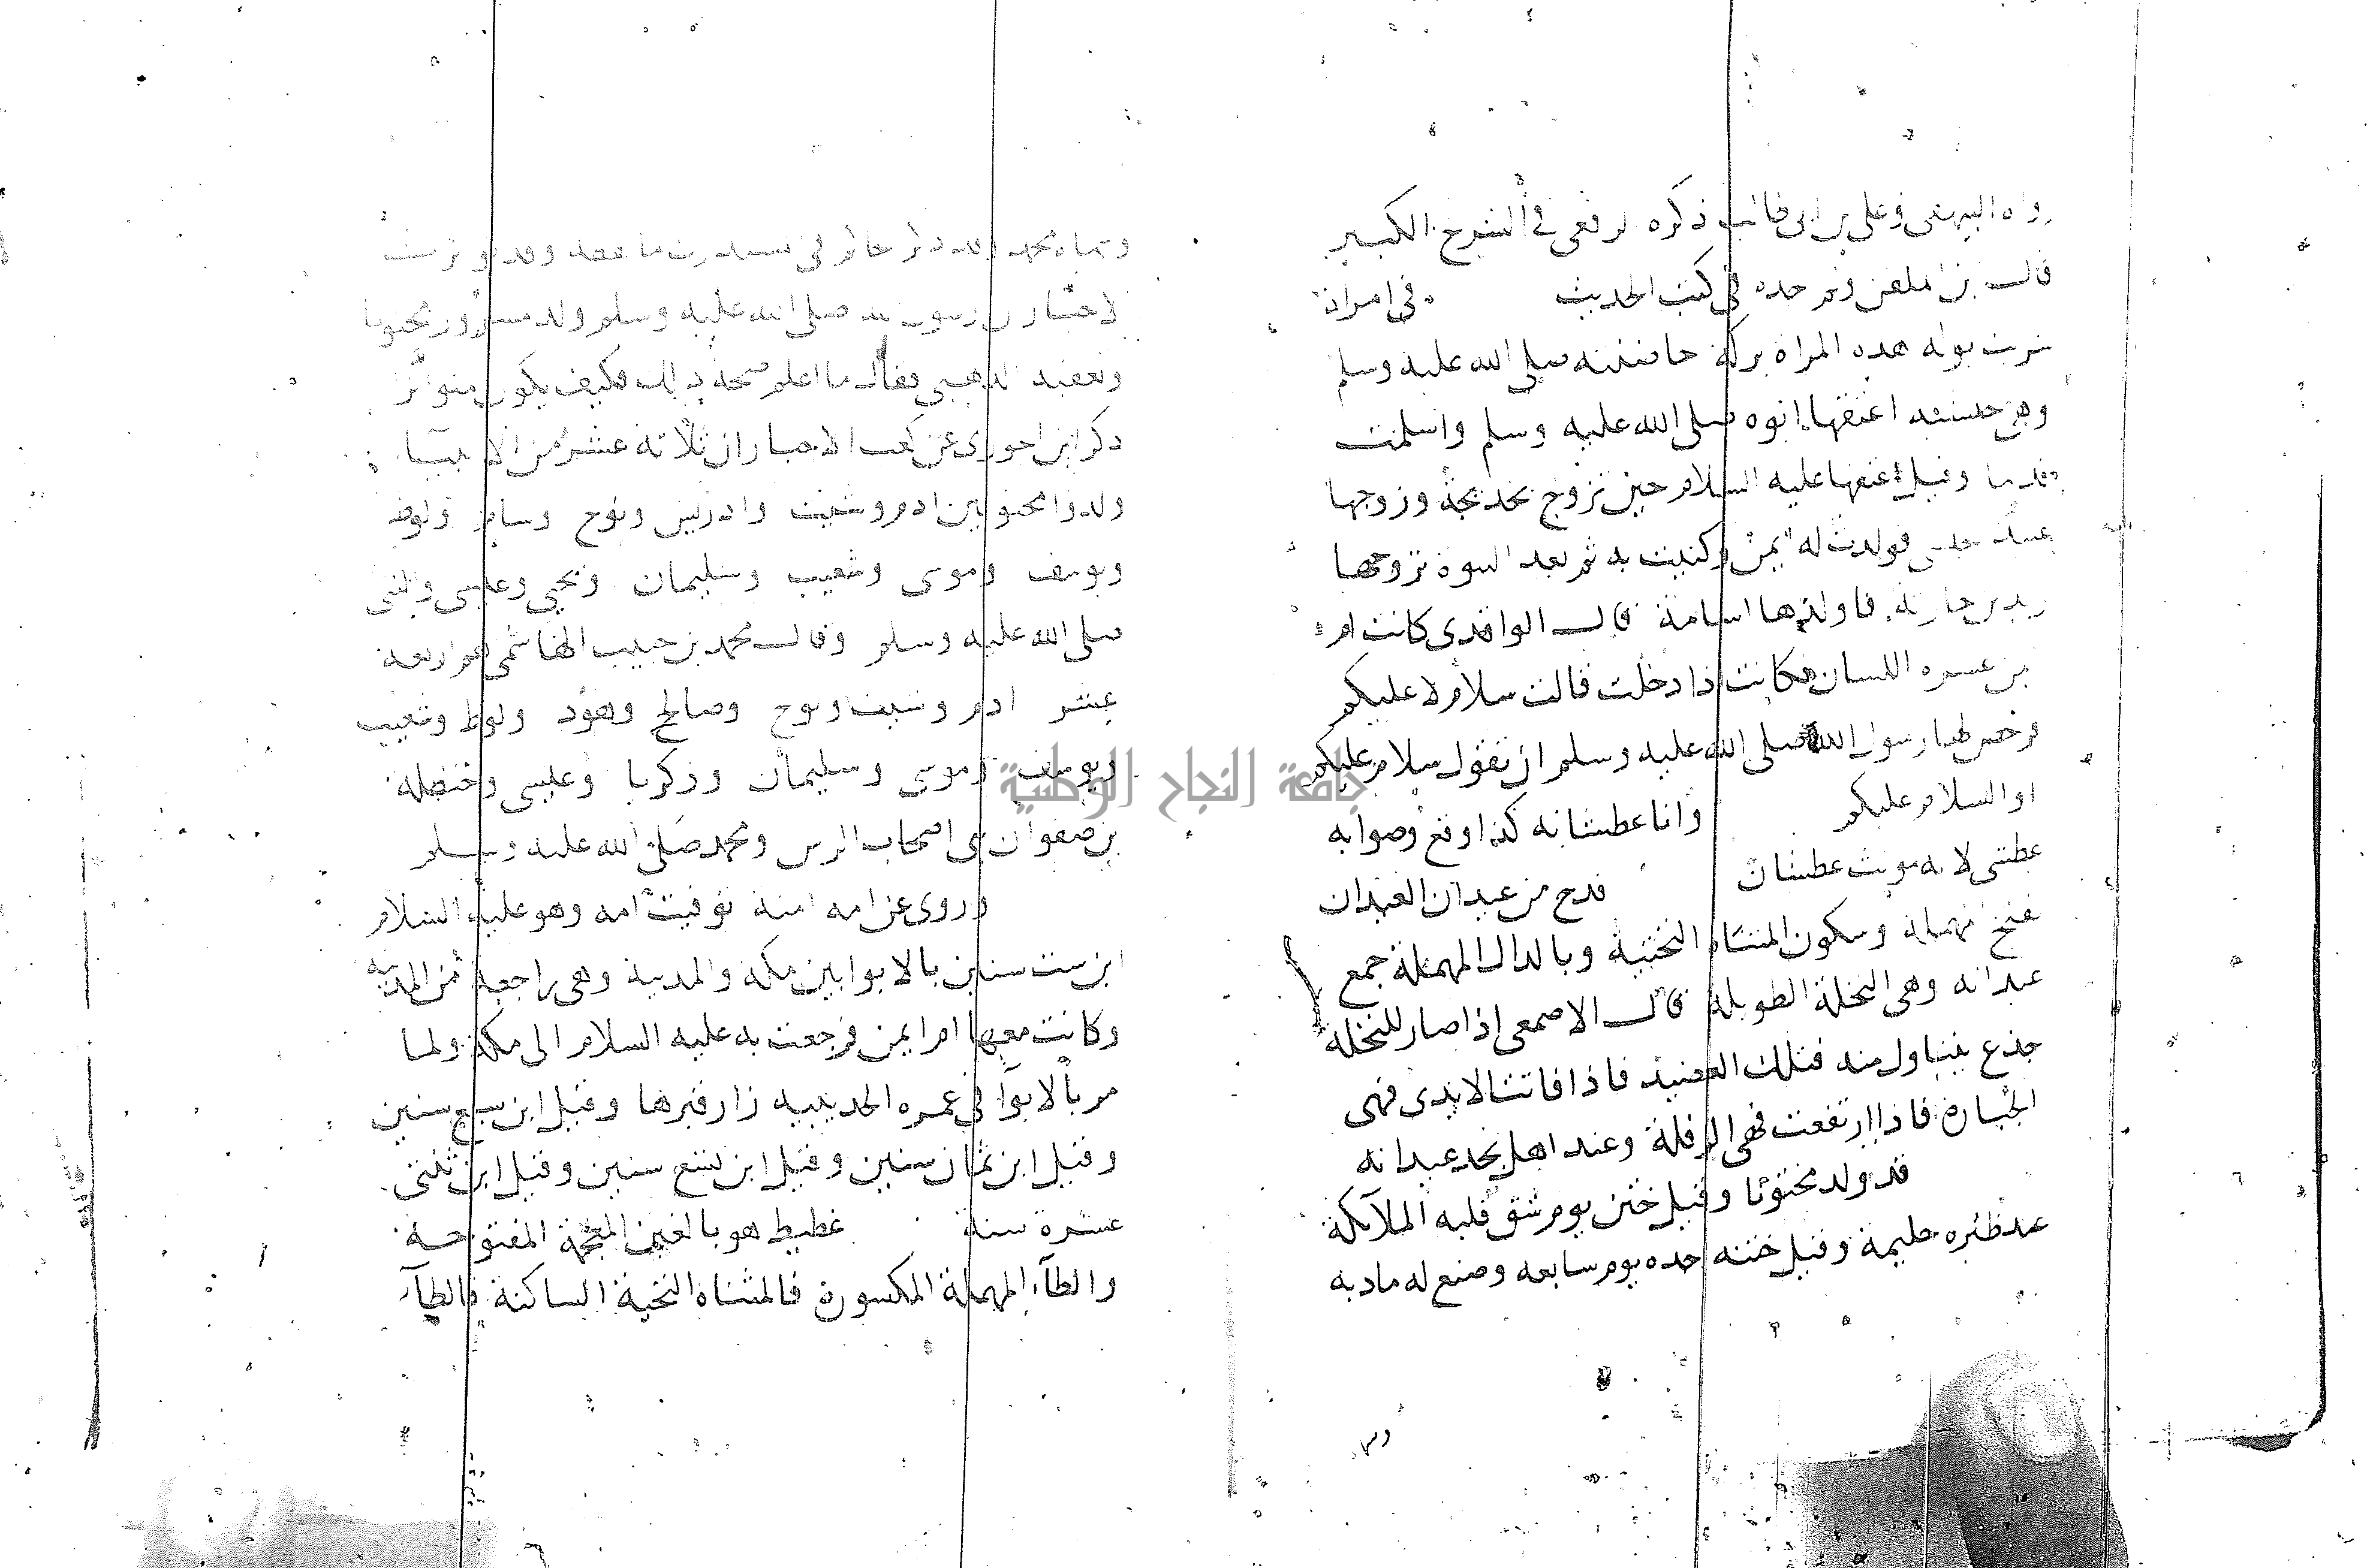 رواه البيهقي وعلي بن ابي طالب ذكره الرافعي في الشرح الكبير
قال ابن ملقن ولم اجده في كتب الحديث في امراة
شربت بوله هذه المراة بركة حاضنته صلى الله عليه وسلم
وهي حبشية اعتقها ابوه صلى الله عليه وسلم واسلمت
قديما وقيل اعتقها عليه السلام حين تزوج بخديجة وزوجها
عبيد حبشي فولدت له ايمن وكنيت به ثم بعد النبوة تزوجها
زيد بن حارثة فاولدها اسامة قال الواقدي كانت ام
ايمن عسرة اللسان فكانت اذا دخلت قالت سلام لا عليكم
فرخص لها رسول الله صلى الله عليه وسلم ان تقول سلام عليكم
او السلام عليكم وانا عطشانه كذا وقع وصوابه
عطشى لانه مونث عطشان قدح من عيدان العيدان
بفتح مهملة وسكون المثناه التحتية وبالدال المهملة جمع
عيدانه وهي النخلة الطويلة قال الاصمعي اذا صار للنخلة
جذع يتناول منه فتلك العضيد فاذا فاتت الايدي فهي
الجبارة فاذا ارتفعت فهي الرقلة وعند اهل نجد عيدانه
قد ولد مختونا وقيل ختن يوم شق قلبه الملائكة
عند ظئره حليمة وقيل ختنه جده يوم سابعه وصنع له مادبه
وسما
وسماه محمد وقد ذكر حاكم في مستدرك ما نصه وقد تواترت
الاخبار ان رسول الله صلى الله عليه وسلم ولد مسرورا مختونا
وتعقبه الذهبي فقال ما اعلم صحة ذلك فكيف يكون متواترا
ذكر ابن الجوزي عن كعب الاحبار ان ثلاثة عشر من الانبيا
ولدوا مختونين ادم وشيث وادريس ونوح وسام ولوط
ويوسف وموسى وشعيب وسليمان ويحيي وعيسى والنبي
صلى الله عليه وسلم وقال محمد بن حبيب الهاشمي هم اربعة
عشر ادم وشيث ونوح وصالح وهود ولوط وشعيب
ويوسف وموسى وسليمان وزكريا وعيسى وحنضلة
بن صفوان نبي اصحاب الرس ومحمد صلى الله عليه وسلم
وروى عن امه امنة توفيت امه وهو عليه السلام
ابن ست سنين بالابوا بين مكه والمدينة وهي راجعة من المدينه
وكانت معها ام ايمن فرجعت به عليه السلام الى مكة ولما
مر بالابوا في عمره الحديبيه زار قبرها وقيل ابن سبع سنين
وقيل ابن ثمان سنين وقيل ابن تسع سنين وقيل ابن ثنتي
عشرة سنة غطيط هو بالغين المعجمة المفتوحة
والطاء المهملة المكسورة فالمثناه التحتية الساكنة فالطاء
جامعة النجاح الوطنية